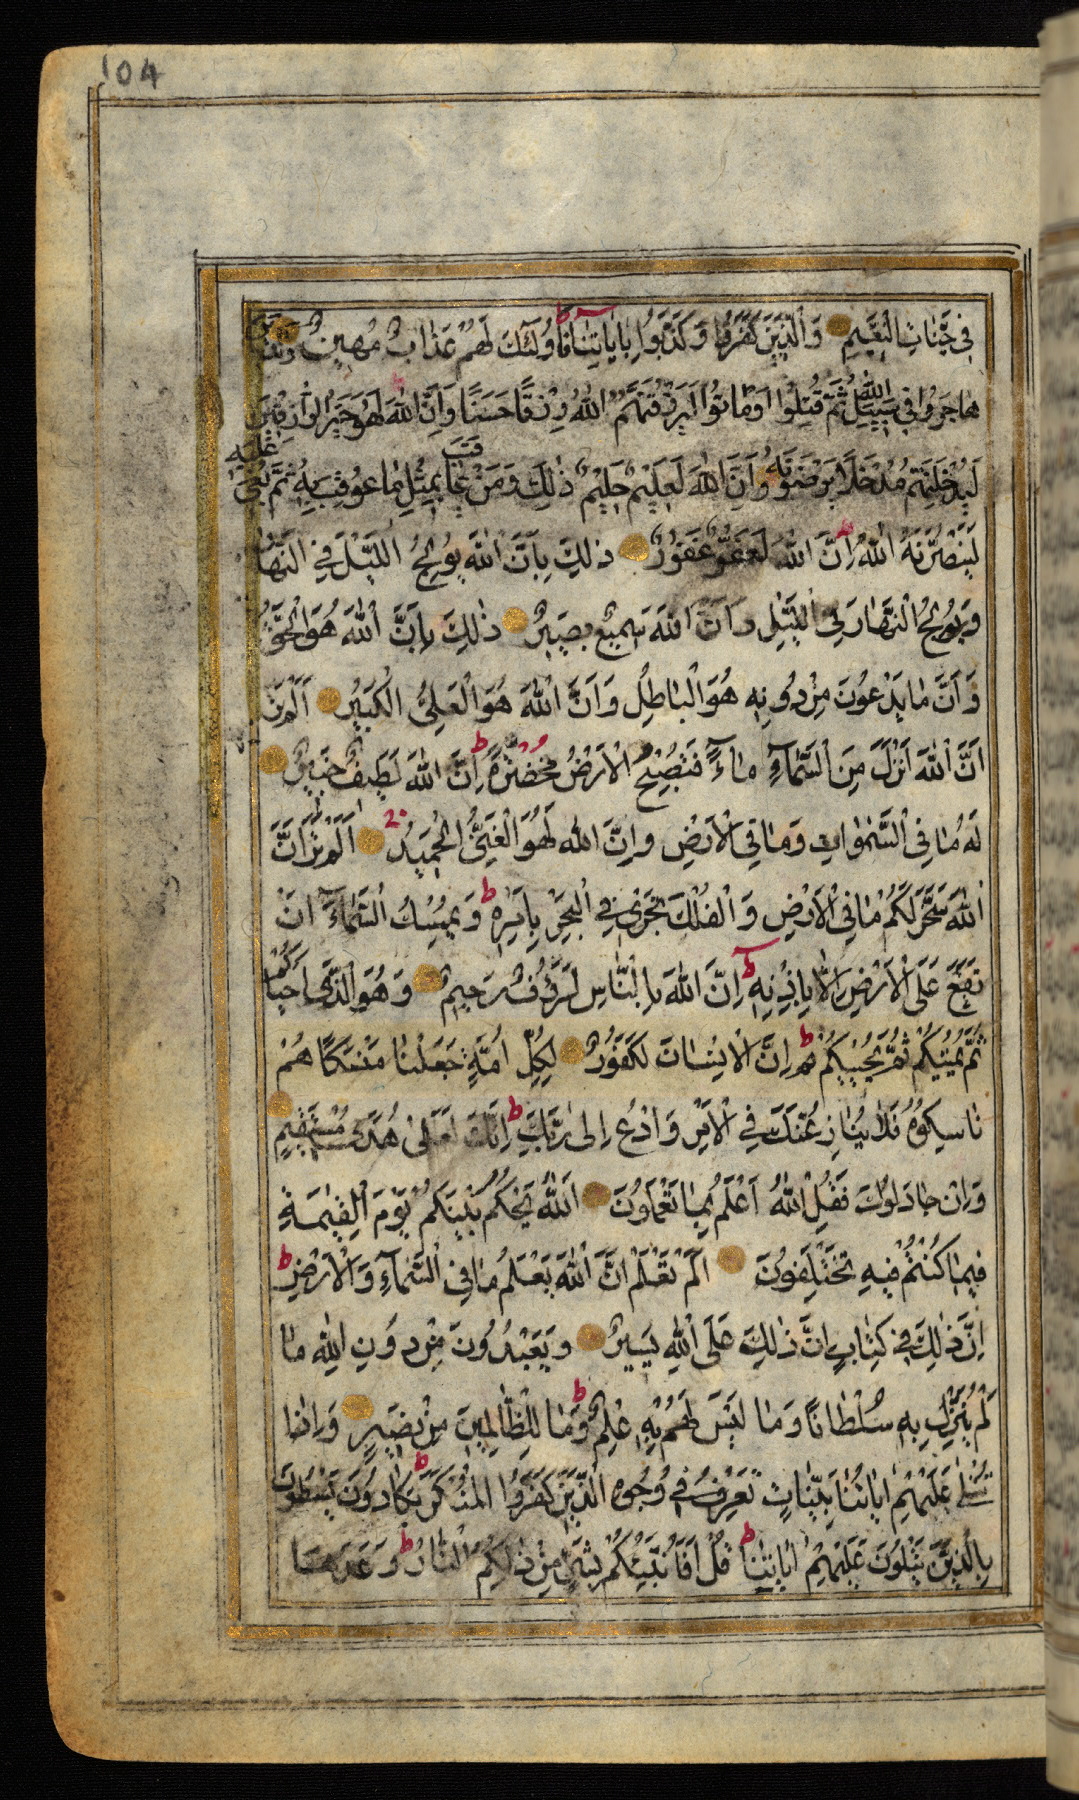 104
فِي جَنَّاتِ النَّعِيمِ وَالَّذِينَ كَفَرُوا وَكَذَّبُوا بِاٰيَاتِنَا فَاُولٰٓئِكَ لَهُمْ عَذَابٌ مُهِينٌ وَالَّذِينَ
هَاجَرُوا فِي سَبِيلِ اللّٰهِ ثُمَّ قُتِلُوا اَوْ مَاتُوا لَيَرْزُقَنَّهُمُ اللّٰهُ رِزْقًا حَسَنًا وَاِنَّ اللّٰهَ لَهُوَ خَيْرُ الرَّازِقِينَ
لَيُدْخِلَنَّهُمْ مُدْخَلًا يَرْضَوْنَهُ وَاِنَّ اللّٰهَ لَعَلِيمٌ حَلِيمٌ ذٰلِكَ وَمَنْ عَاقَبَ بِمِثْلِ مَا عُوقِبَ بِهِ ثُمَّ بُغِيَ عَلَيْهِ
لَيَنْصُرَنَّهُ اللّٰهُ اِنَّ اللّٰهَ لَعَفُوٌّ غَفُورٌ ذٰلِكَ بِاَنَّ اللّٰهَ يُولِجُ اللَّيْلَ فِي النَّهَارِ
وَيُولِجُ النَّهَارَ فِي اللَّيْلِ وَاَنَّ اللّٰهَ سَمِيعٌ بَصِيرٌ ذٰلِكَ بِاَنَّ اللّٰهَ هُوَ الْحَقُّ
وَاَنَّ مَا يَدْعُونَ مِنْ دُونِهِ هُوَ الْبَاطِلُ وَاَنَّ اللّٰهَ هُوَ الْعَلِيُّ الْكَبِيرُ اَلَمْ تَرَ
اَنَّ اللّٰهَ اَنْزَلَ مِنَ السَّمَآءِ مَآءً فَتُصْبِحُ الْاَرْضُ مُخْضَرَّةً اِنَّ اللّٰهَ لَطِيفٌ خَبِيرٌ
لَهُ مَا فِي السَّمٰوَاتِ وَمَا فِي الْاَرْضِ وَاِنَّ اللّٰهَ لَهُوَ الْغَنِيُّ الْحَمِيدُ اَلَمْ تَرَ اَنَّ
اللّٰهَ سَخَّرَ لَكُمْ مَا فِي الْاَرْضِ وَالْفُلْكَ تَجْرِي فِي الْبَحْرِ بِاَمْرِهِ وَيُمْسِكُ السَّمَآءَ اَنْ
تَقَعَ عَلَى الْاَرْضِ اِلَّا بِاِذْنِهِ اِنَّ اللّٰهَ بِالنَّاسِ لَرَؤُفٌ رَحِيمٌ وَهُوَ الَّذِي اَحْيَاكُمْ
ثُمَّ يُمِيتُكُمْ ثُمَّ يُحْيِيكُمْ اِنَّ الْاِنْسَانَ لَكَفُورٌ لِكُلِّ اُمَّةٍ جَعَلْنَا مَنْسَكًا هُمْ
نَاسِكُوهُ فَلَا يُنَازِعُنَّكَ فِي الْاَمْرِ وَادْعُ اِلٰى رَبِّكَ اِنَّكَ لَعَلٰى هُدًى مُسْتَقِيمٍ
وَاِنْ جَادَلُوكَ فَقُلِ اللّٰهُ اَعْلَمُ بِمَا تَعْمَلُونَ اَللّٰهُ يَحْكُمُ بَيْنَكُمْ يَوْمَ الْقِيٰمَةِ
فِيمَا كُنْتُمْ فِيهِ تَخْتَلِفُونَ اَلَمْ تَعْلَمْ اَنَّ اللّٰهَ يَعْلَمُ مَا فِي السَّمَآءِ وَالْاَرْضِ
اِنَّ ذٰلِكَ فِي كِتَابٍ اِنَّ ذٰلِكَ عَلَى اللّٰهِ يَسِيرٌ وَيَعْبُدُونَ مِنْ دُونِ اللّٰهِ مَا
لَمْ يُنَزِّلْ بِهِ سُلْطَانًا وَمَا لَيْسَ لَهُمْ بِهِ عِلْمٌ وَمَا لِلظَّالِمِينَ مِنْ نَصِيرٍ وَاِذَا
تُتْلٰى عَلَيْهِمْ اٰيَاتُنَا بَيِّنَاتٍ تَعْرِفُ فِي وُجُوهِ الَّذِينَ كَفَرُوا الْمُنْكَرَ يَكَادُونَ يَسْطُونَ
بِالَّذِينَ يَتْلُونَ عَلَيْهِمْ اٰيَاتِنَا قُلْ اَفَاُنَبِّئُكُمْ بِشَرٍّ مِنْ ذٰلِكُمُ النَّارُ وَعَدَهَا